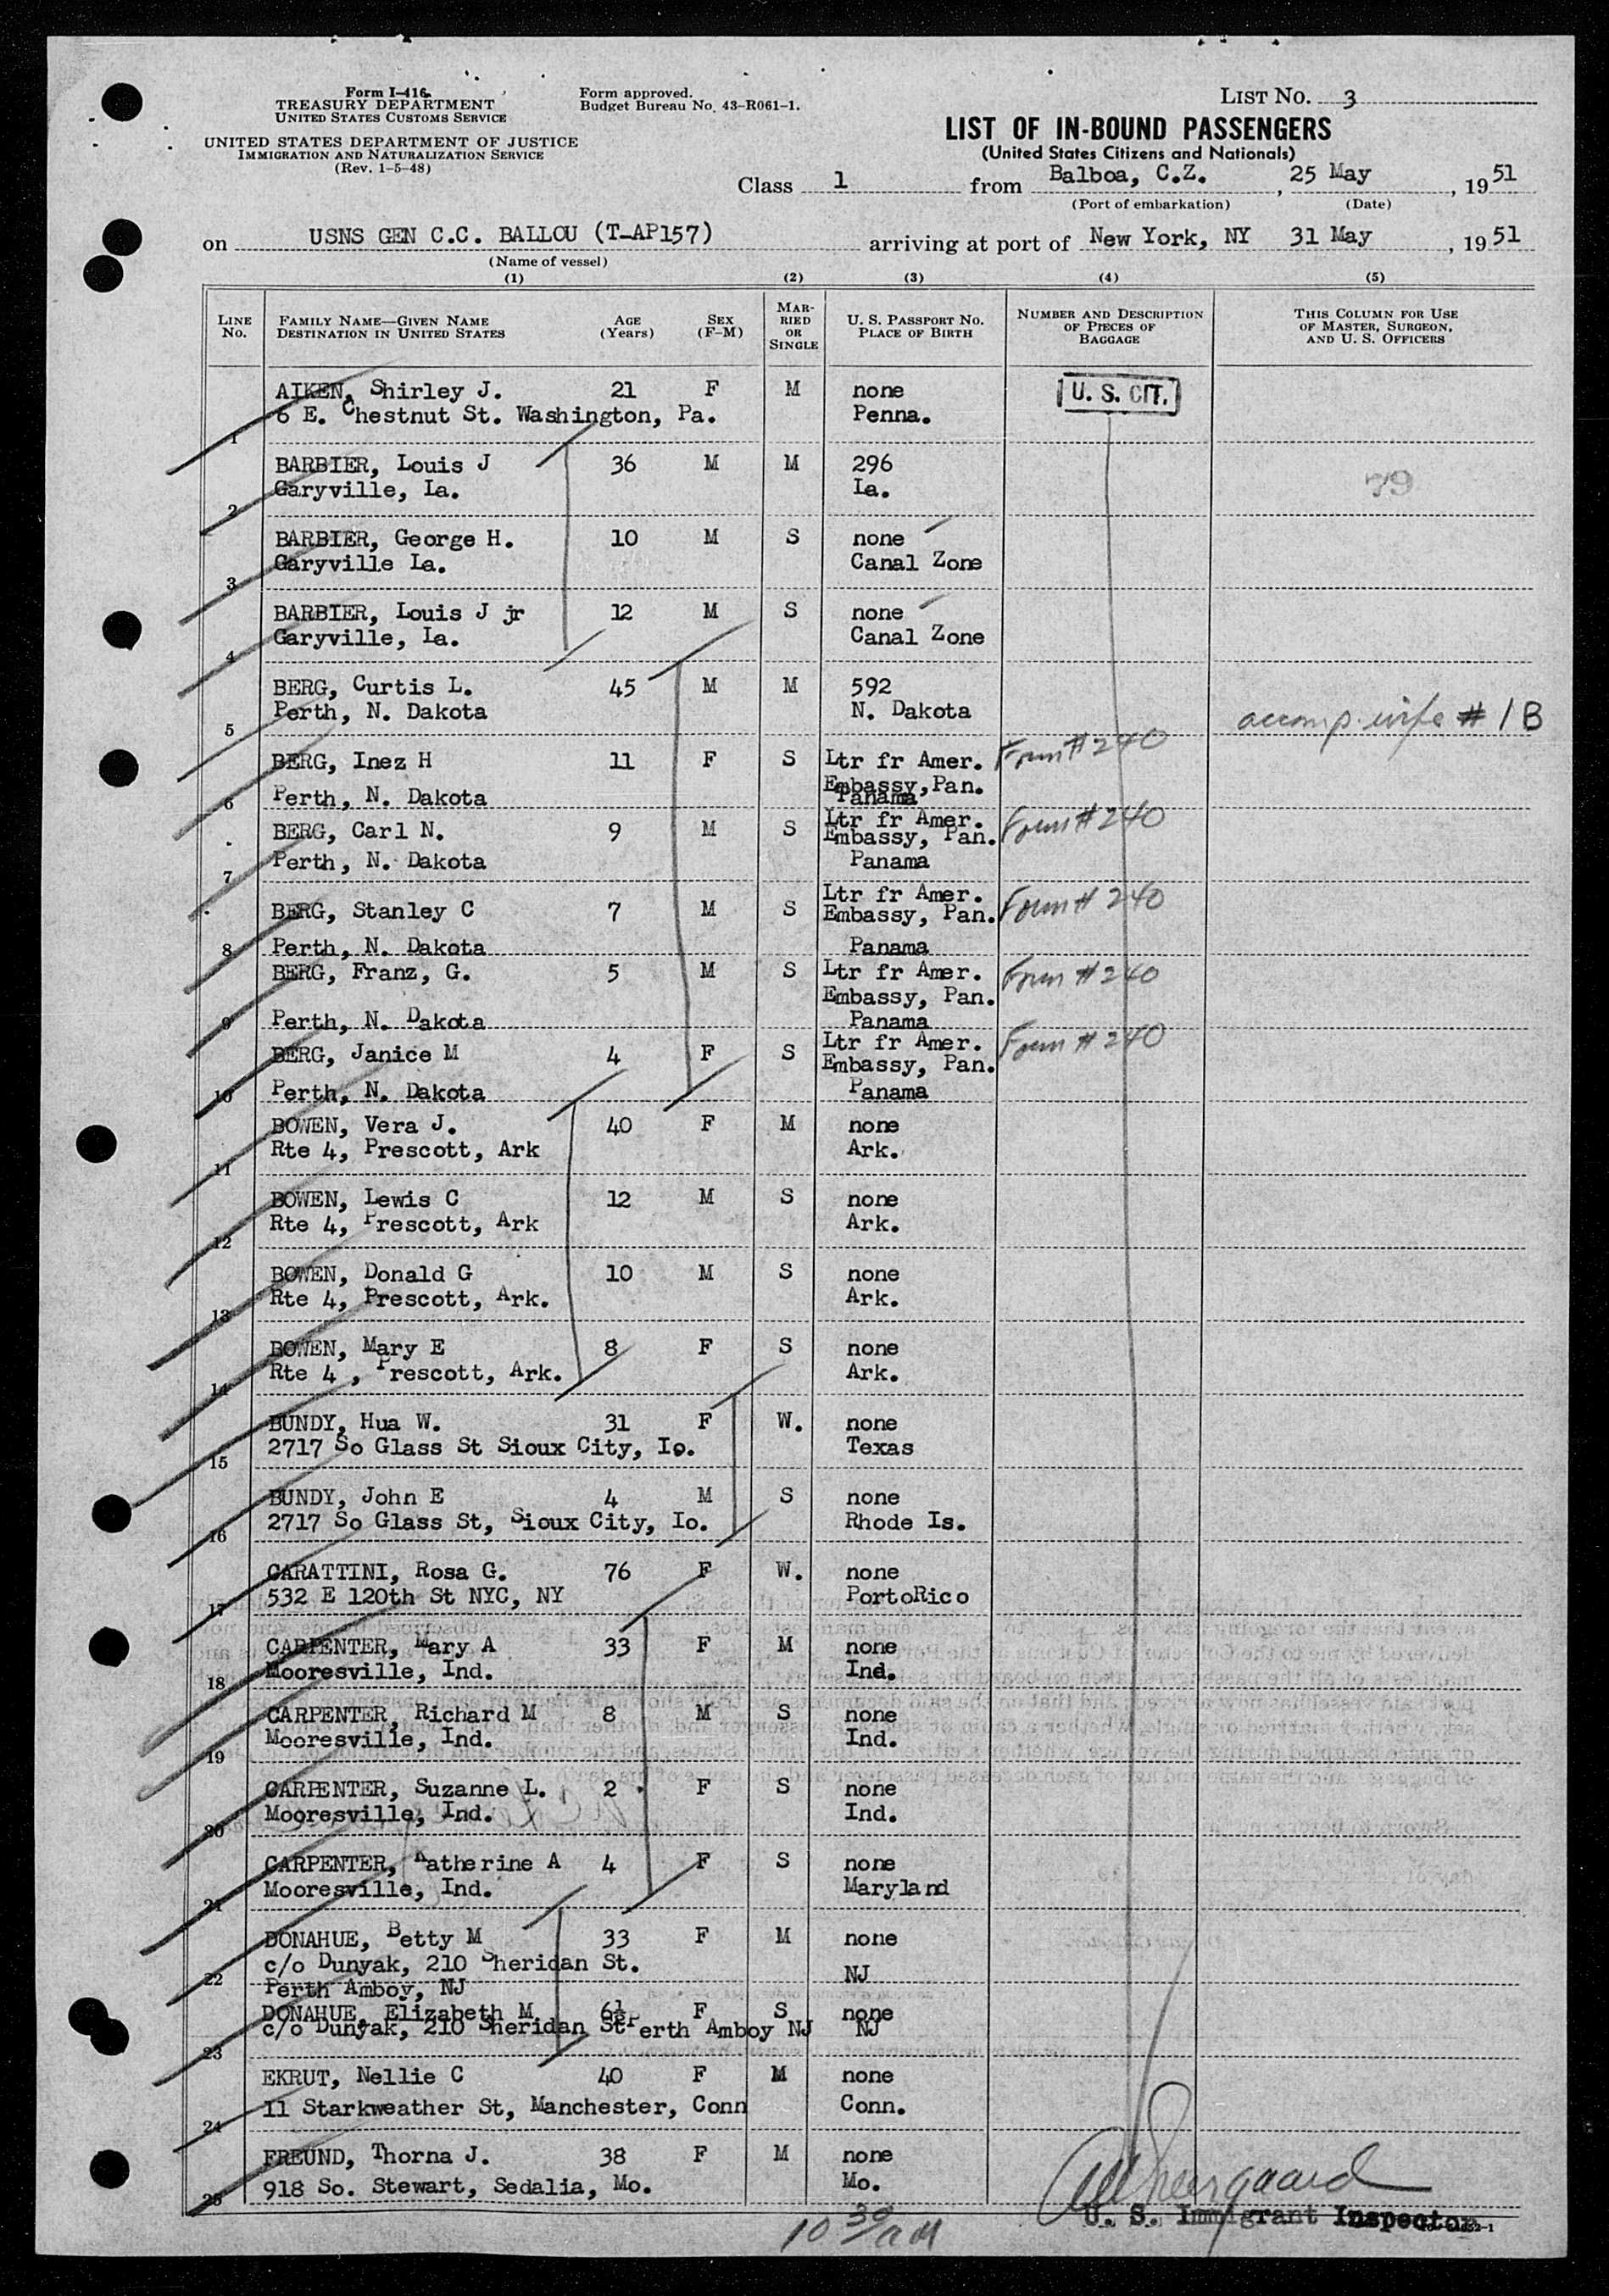 Form I-416
TREASURY DEPARTMENT
UNITED STATES CUSTOMS SERVICE
UNITED STATES DEPARTMENT OF JUSTICE
IMMIGRATION AND NATURALIZATION SERVICE
(Rev. 1-5-48)
Form approved.
Budget Bureau No. 43-R061-1.
LIST NO. 3
LIST OF IN-BOUND PASSENGERS
(United States Citizens and Nationals)
Class 1 from Balboa, C.Z., 25 May, 1951
(Port of embarkation) (Date)
on USNS GEN C.C. BALLOU (T-AP157) arriving at port of New York, NY 31 May, 1951
(Name of vessel)
(1) (2) (3) (4) (5)
LINE No. FAMILY NAME—GIVEN NAME DESTINATION IN UNITED STATES AGE (Years) SEX (F-M) MARRIED OR SINGLE U. S. PASSPORT NO. PLACE OF BIRTH NUMBER AND DESCRIPTION OF PIECES OF BAGGAGE THIS COLUMN FOR USE OF MASTER, SURGEON, AND U. S. OFFICERS
AIKEN, Shirley J. 21 F M none U. S. CIT.
1 6 E. Chestnut St. Washington, Pa. Penna.
BARBIER, Louis J 36 M M 296 79
2 Garyville, La. La.
BARBIER, George H. 10 M S none
3 Garyville La. Canal Zone
BARBIER, Louis J jr 12 M S none
4 Garyville, La. Canal Zone
BERG, Curtis L. 45 M M 592
5 Perth, N. Dakota N. Dakota accomp. wife # 1 B
BERG, Inez H 11 F S Ltr fr Amer. Form # 240
Embassy, Pan.
6 Perth, N. Dakota Panama
BERG, Carl N. 9 M S Ltr fr Amer. Form # 240
Embassy, Pan.
7 Perth, N. Dakota Panama
BERG, Stanley C 7 M S Ltr fr Amer. Form # 240
Embassy, Pan.
8 Perth, N. Dakota Panama
BERG, Franz, G. 5 M S Ltr fr Amer. Form # 240
Embassy, Pan.
9 Perth, N. Dakota Panama
BERG, Janice M 4 F S Ltr fr Amer. Form # 240
Embassy, Pan.
10 Perth, N. Dakota Panama
BOWEN, Vera J. 40 F M none
11 Rte 4, Prescott, Ark Ark.
BOWEN, Lewis C 12 M S none
12 Rte 4, Prescott, Ark Ark.
BOWEN, Donald G 10 M S none
13 Rte 4, Prescott, Ark. Ark.
BOWEN, Mary E 8 F S none
14 Rte 4 , Prescott, Ark. Ark.
BUNDY, Hua W. 31 F W. none
15 2717 So Glass St Sioux City, Io. Texas
BUNDY, John E 4 M S none
16 2717 So Glass St, Sioux City, Io. Rhode Is.
CARATTINI, Rosa G. 76 F W. none
17 532 E 120th St NYC, NY PortoRico
CARPENTER, Mary A 33 F M none
18 Mooresville, Ind. Ind.
CARPENTER, Richard M 8 M S none
19 Mooresville, Ind. Ind.
CARPENTER, Suzanne L. 2 F S none
20 Mooresville, Ind. Ind.
CARPENTER, Katherine A 4 F S none
21 Mooresville, Ind. Maryland
DONAHUE, Betty M 33 F M none
22 c/o Dunyak, 210 Sheridan St. NJ
Perth Amboy, NJ
DONAHUE, Elizabeth M 6½ F S none
23 c/o Dunyak, 210 Sheridan St Perth Amboy NJ NJ
EKRUT, Nellie C 40 F M none
24 11 Starkweather St, Manchester, Conn Conn.
FREUND, Thorna J. 38 F M none
25 918 So. Stewart, Sedalia, Mo. Mo.
10 30/AM
U. S. Immigrant Inspector